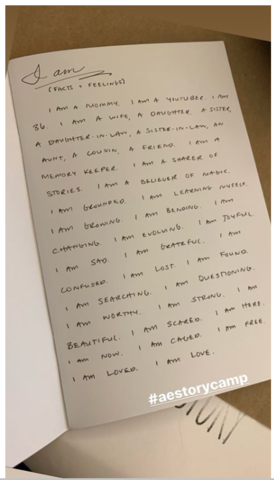 I am
(FACTS + FEELINGS)
I AM A MOMMY. I AM A YOUTUBER. I AM
36. I AM A WIFE, A DAUGHTER, A SISTER,
A DAUGHTER-IN-LAW, A SISTER-IN-LAW, AN
AUNT, A COUSIN, A FRIEND. I AM A
MEMORY KEEPER. I AM A SHARER OF
STORIES. I AM A BELIEVER OF MAGIC.
I AM GROUNDED. I AM LEARNING MYSELF.
I AM GROWING. I AM BENDING. I AM
CHANGING. I AM EVOLVING. I AM JOYFUL.
I AM SAD. I AM GRATEFUL. I AM
CONFUSED. I AM LOST. I AM FOUND.
I AM SEARCHING. I AM QUESTIONING.
I AM WORTHY. I AM STRONG. I AM
BEAUTIFUL. I AM SCARED. I AM HERE.
I AM NOW. I AM CAGED. I AM FREE.
I AM LOVED. I AM LOVE.
#aestorycamp
STORY